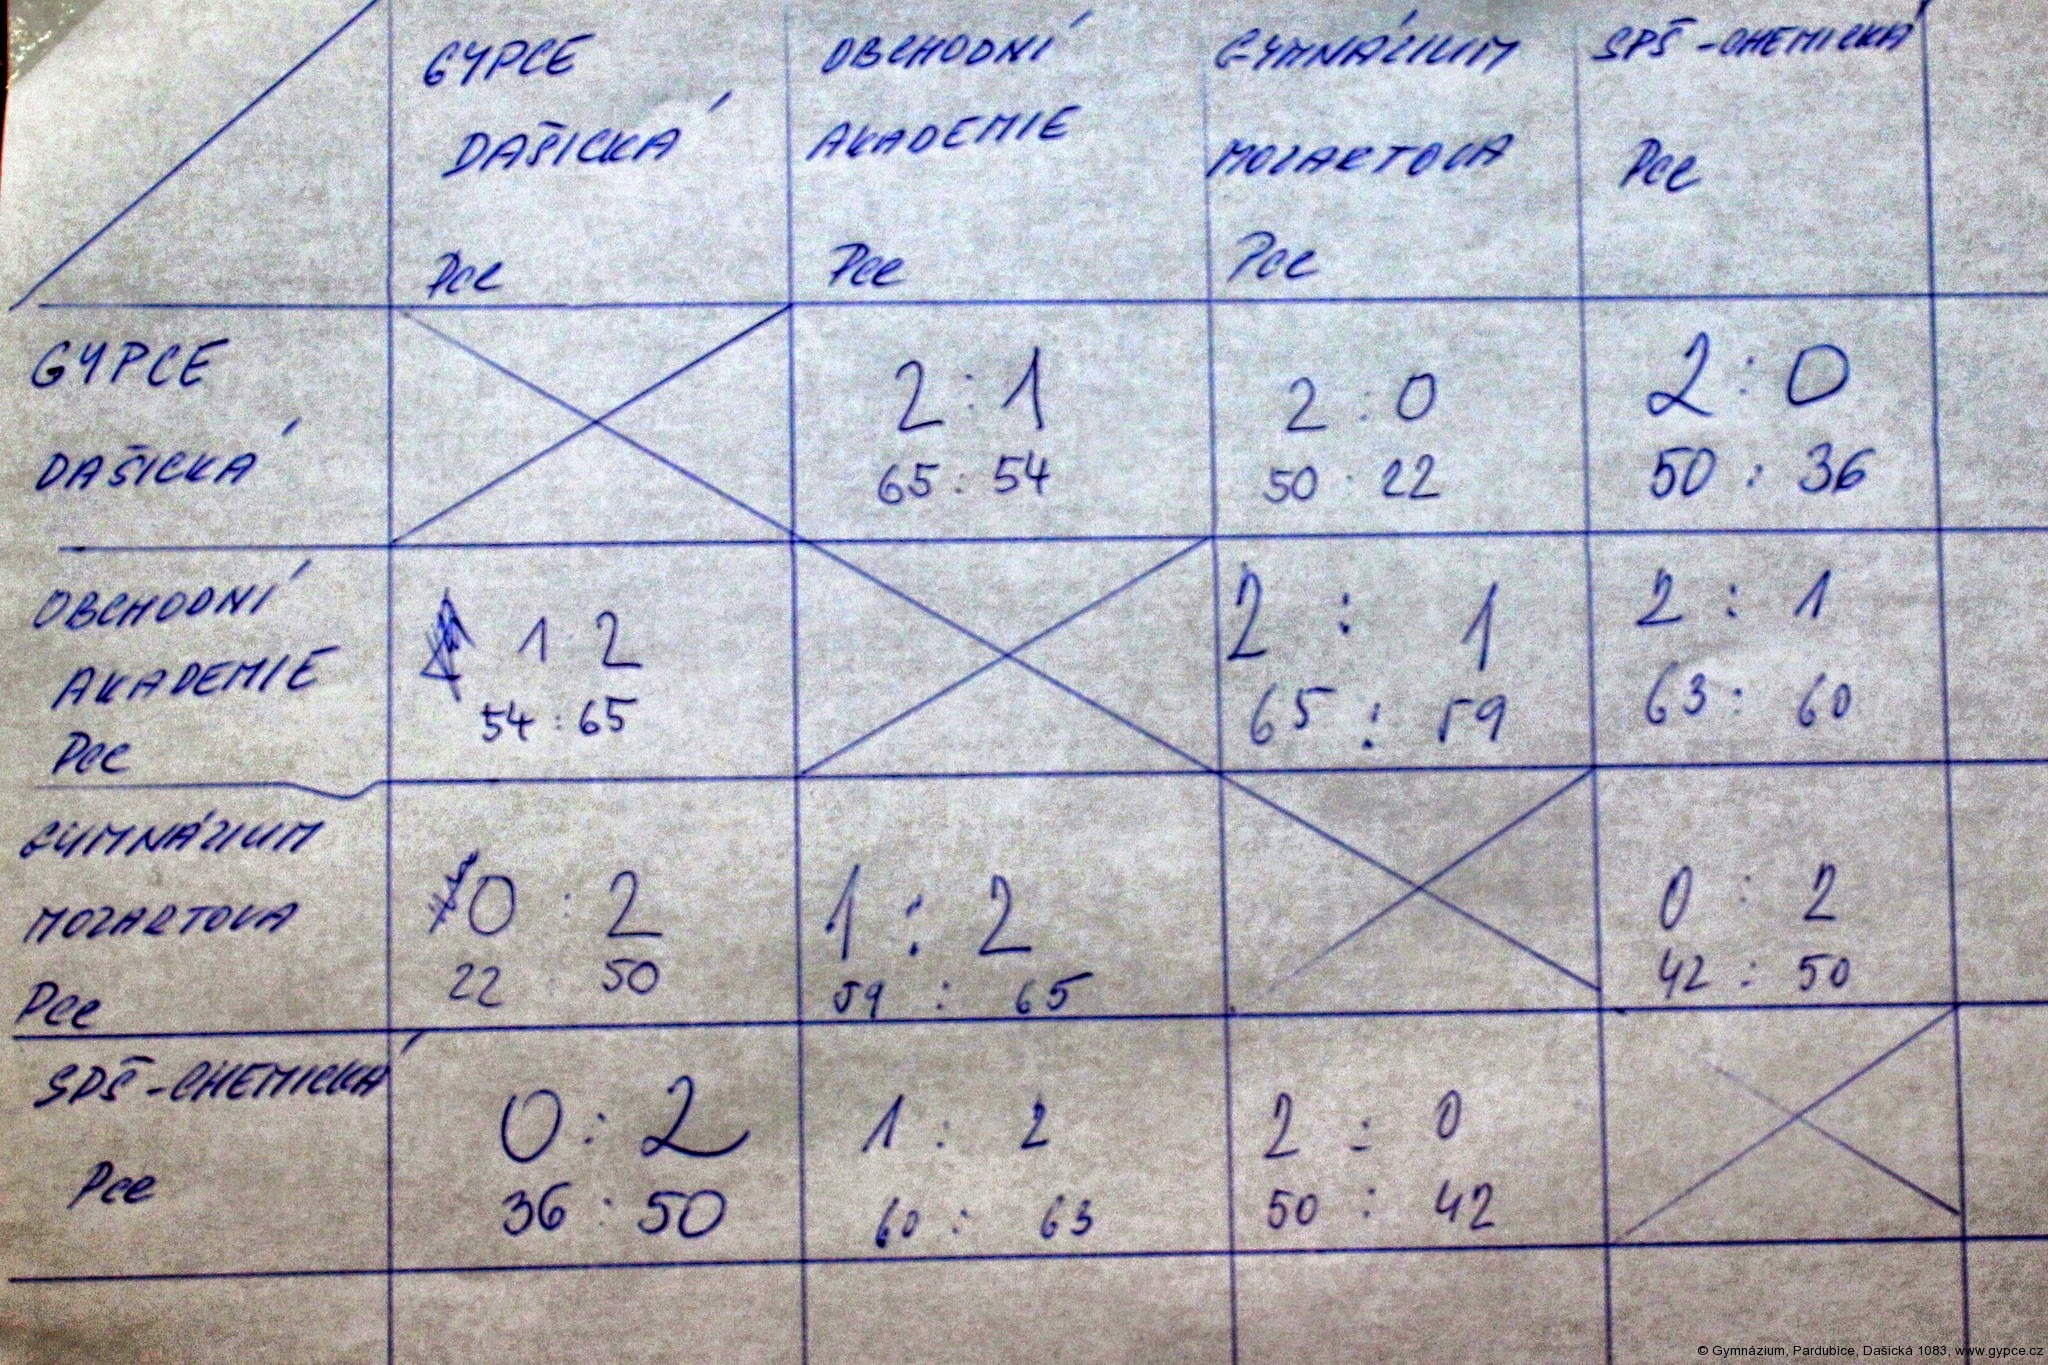 GYPCE
DAŠICKÁ
Pce
OBCHODNÍ
AKADEMIE
Pce
GYMNÁZIUM
MOZARTOVA
Pce
SPŠ-CHEMICKÁ
Pce
GYPCE
DAŠICKÁ
2:1
65:54
2:0
50:22
2:0
50:36
OBCHODNÍ
AKADEMIE
Pce
1:2
54:65
2:1
65:59
2:1
63:60
GYMNÁZIUM
MOZARTOVA
Pce
0:2
22:50
1:2
59:65
0:2
42:50
SPŠ-CHEMICKÁ
Pce
0:2
36:50
1:2
60:63
2:0
50:42
© Gymnázium, Pardubice, Dašická 1083, www.gypce.cz